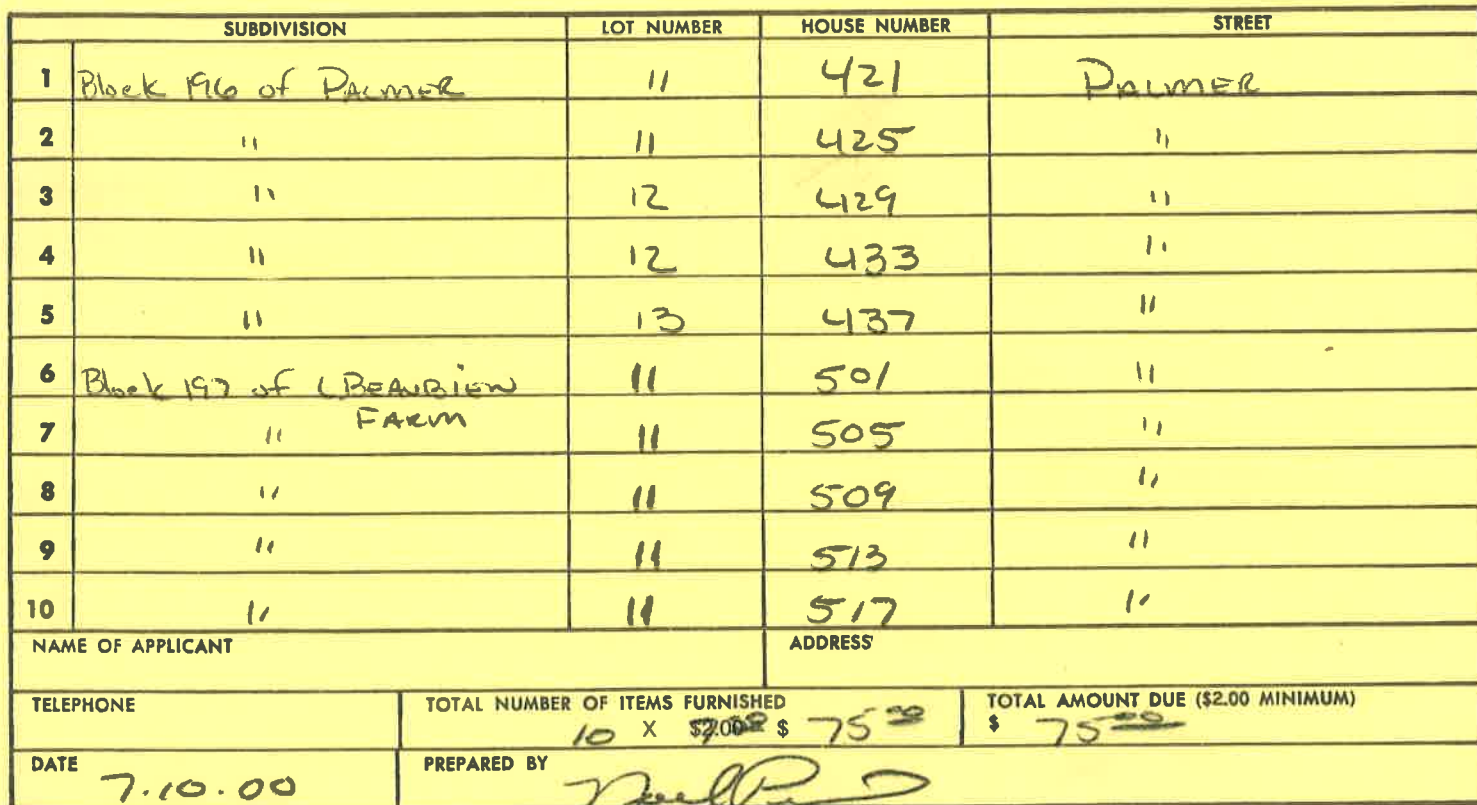 SUBDIVISION LOT NUMBER HOUSE NUMBER STREET
1 Block 196 of PALMER 11 421 PALMER
2 " 11 425 "
3 " 12 429 "
4 " 12 433 "
5 " 13 437 "
6 Block 197 of L BEAUBIEN 11 501 "
FARM
7 " 11 505 "
8 " 11 509 "
9 " 11 513 "
10 " 11 517 "
NAME OF APPLICANT ADDRESS
TELEPHONE TOTAL NUMBER OF ITEMS FURNISHED TOTAL AMOUNT DUE ($2.00 MINIMUM)
10 X $2.00 $ 75 00 $ 75 00
DATE PREPARED BY
7.10.00